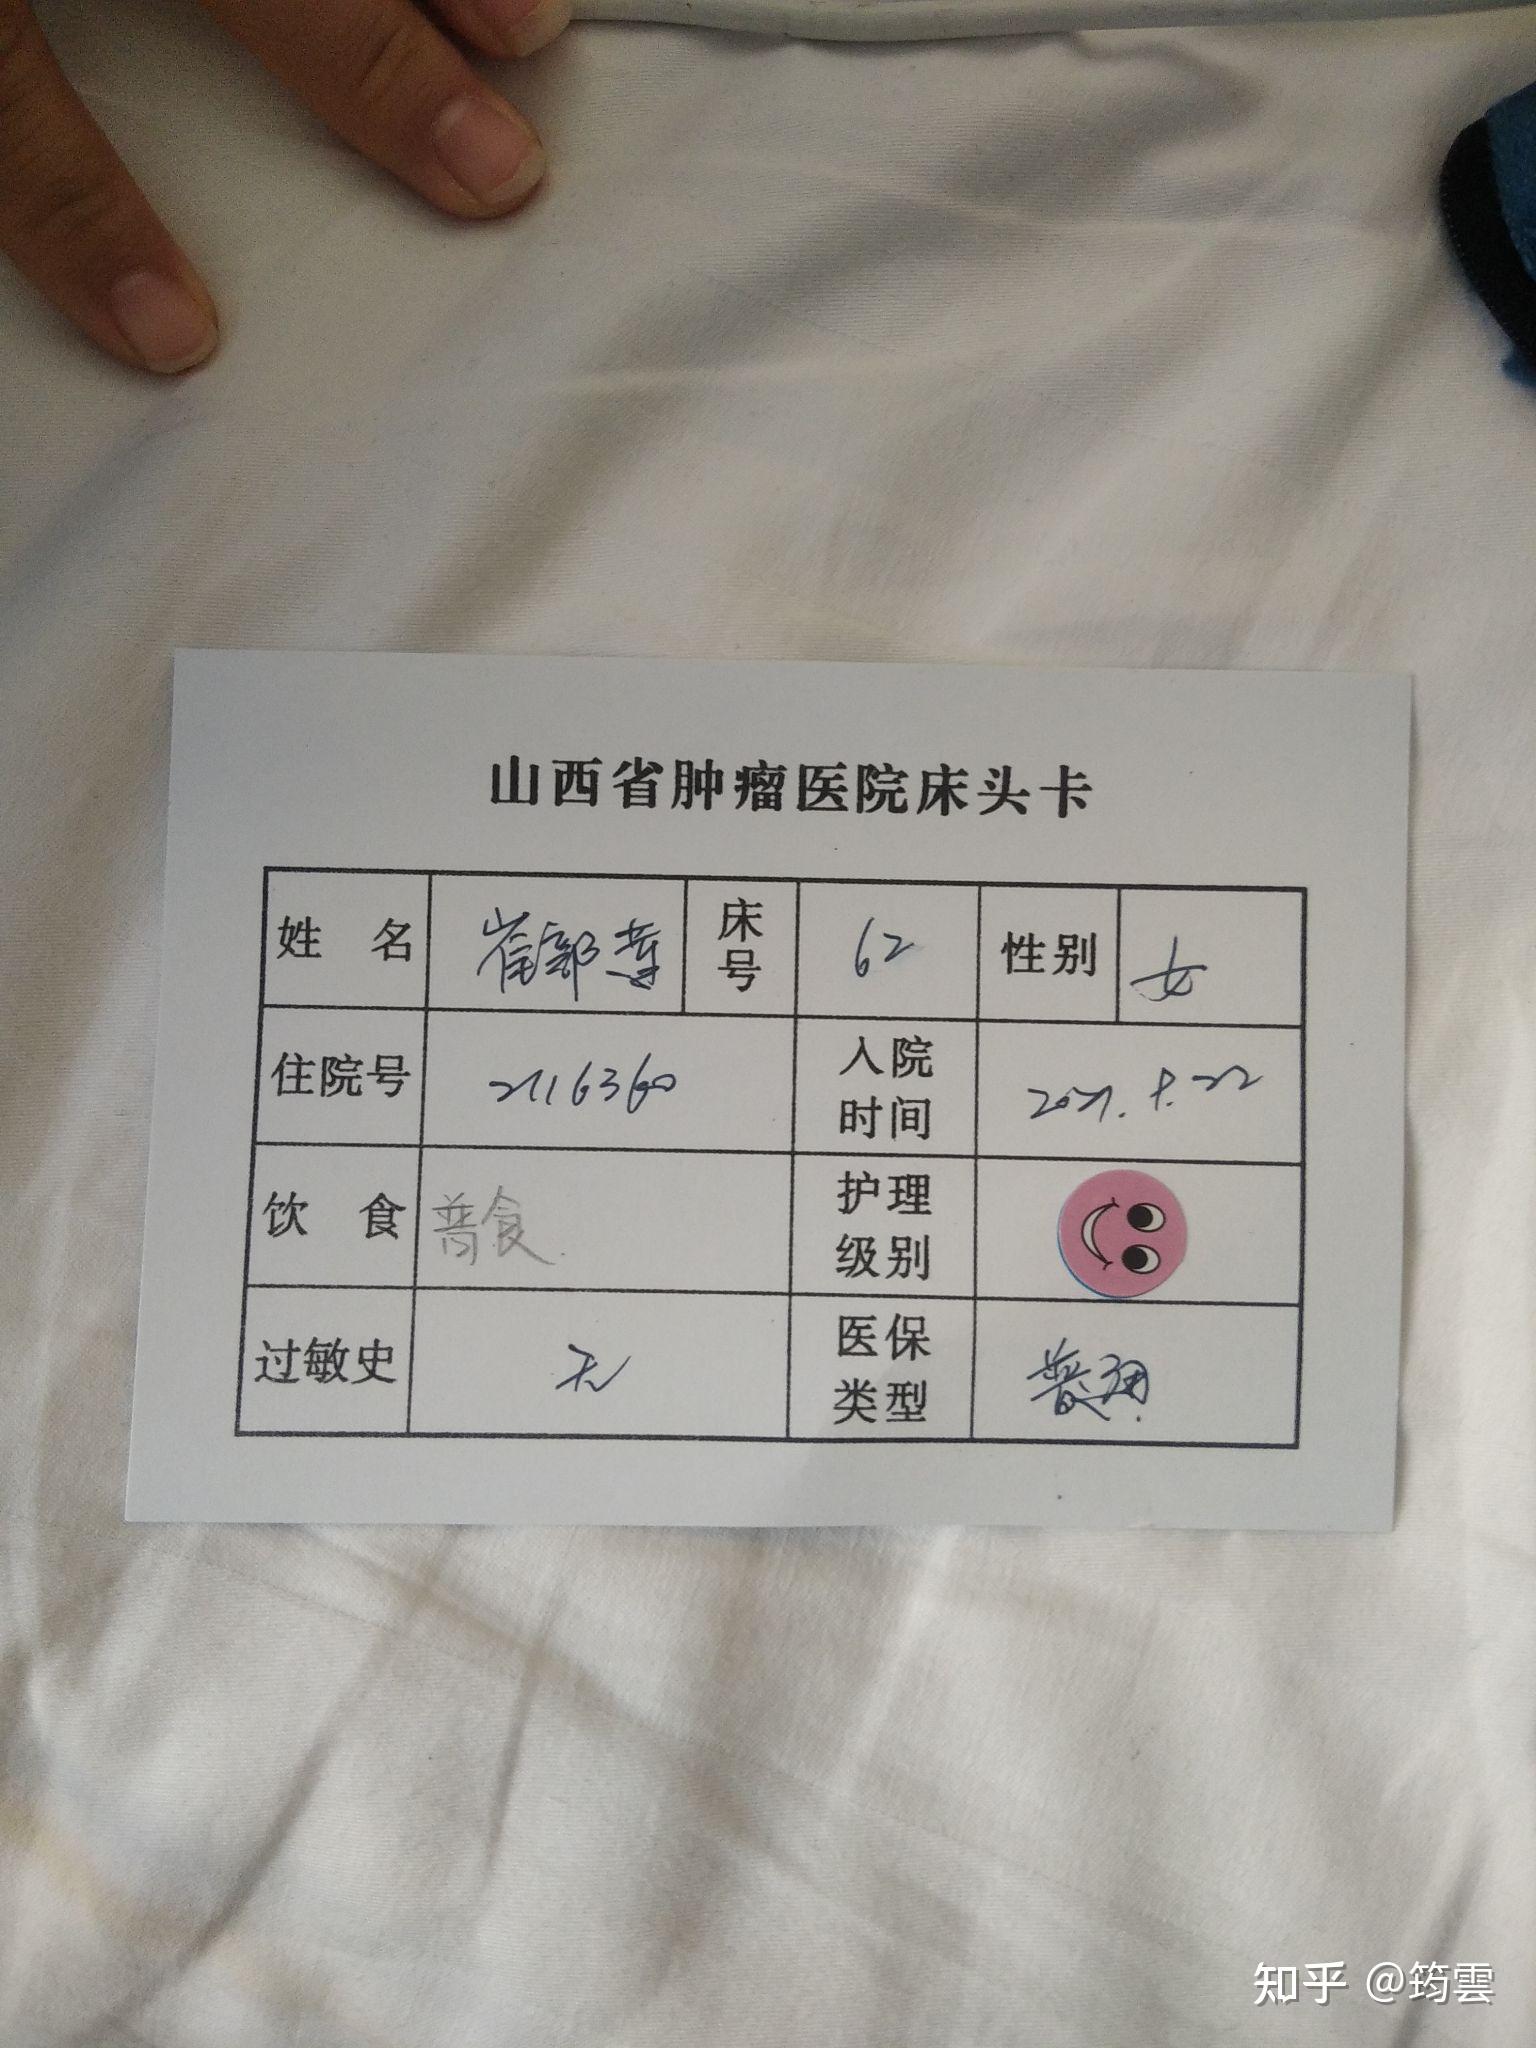 山西省肿瘤医院床头卡
姓 名 崔 床号 62 性别 女
住院号 2116360 入院时间
饮 食 普食 护理级别
过敏史 无 医保类型
知乎 @筠雲